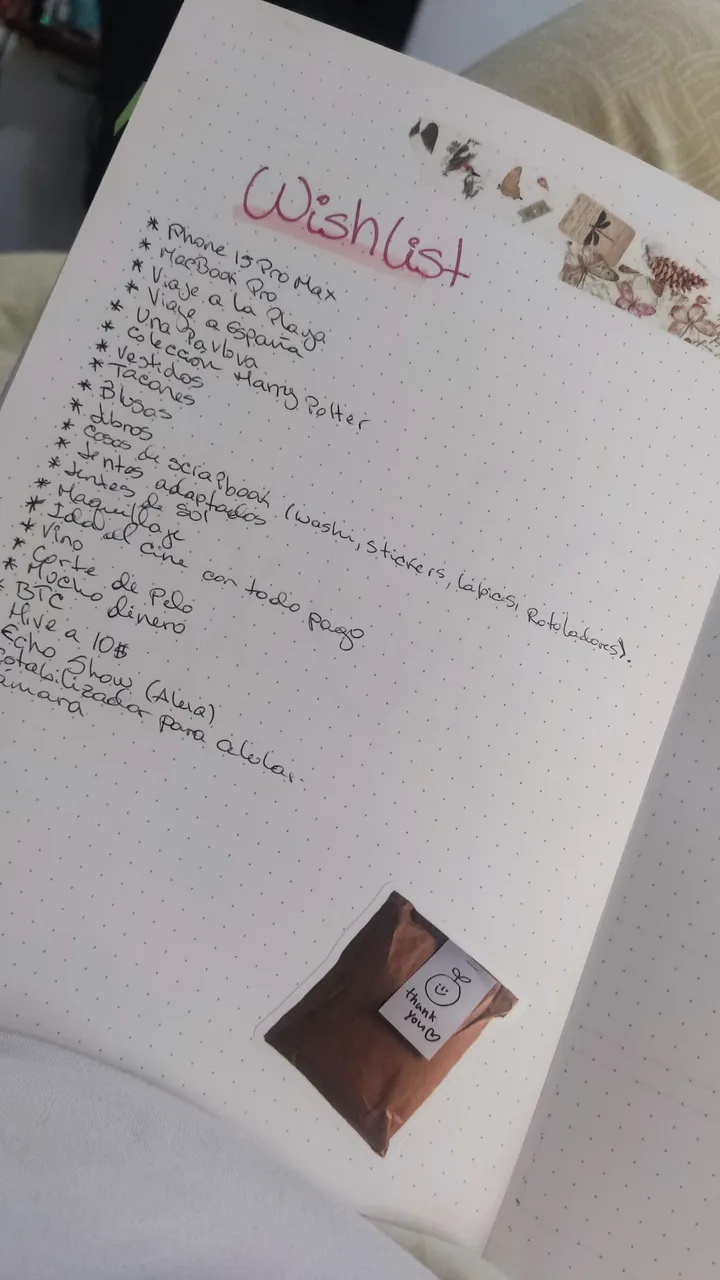 Wishlist
* iPhone 15 Pro Max
* MacBook Pro
* Viaje a la Playa
* Viaje a España
* Una Pavlova
* Colección Harry Potter
* Vestidos
* Tacones
* Blusas
* Libros
* Cosas de scrapbook (washi, stickers, lápices, Rotuladores).
* Lentes adaptados
* Lentes de sol
* Maquillaje
* Ida al cine con todo pago
* Vino
* Corte de pelo
* Mucho dinero
* BTC
Hive a 10$
Echo Show (Alexa)
para celular.
ámara
thank
you